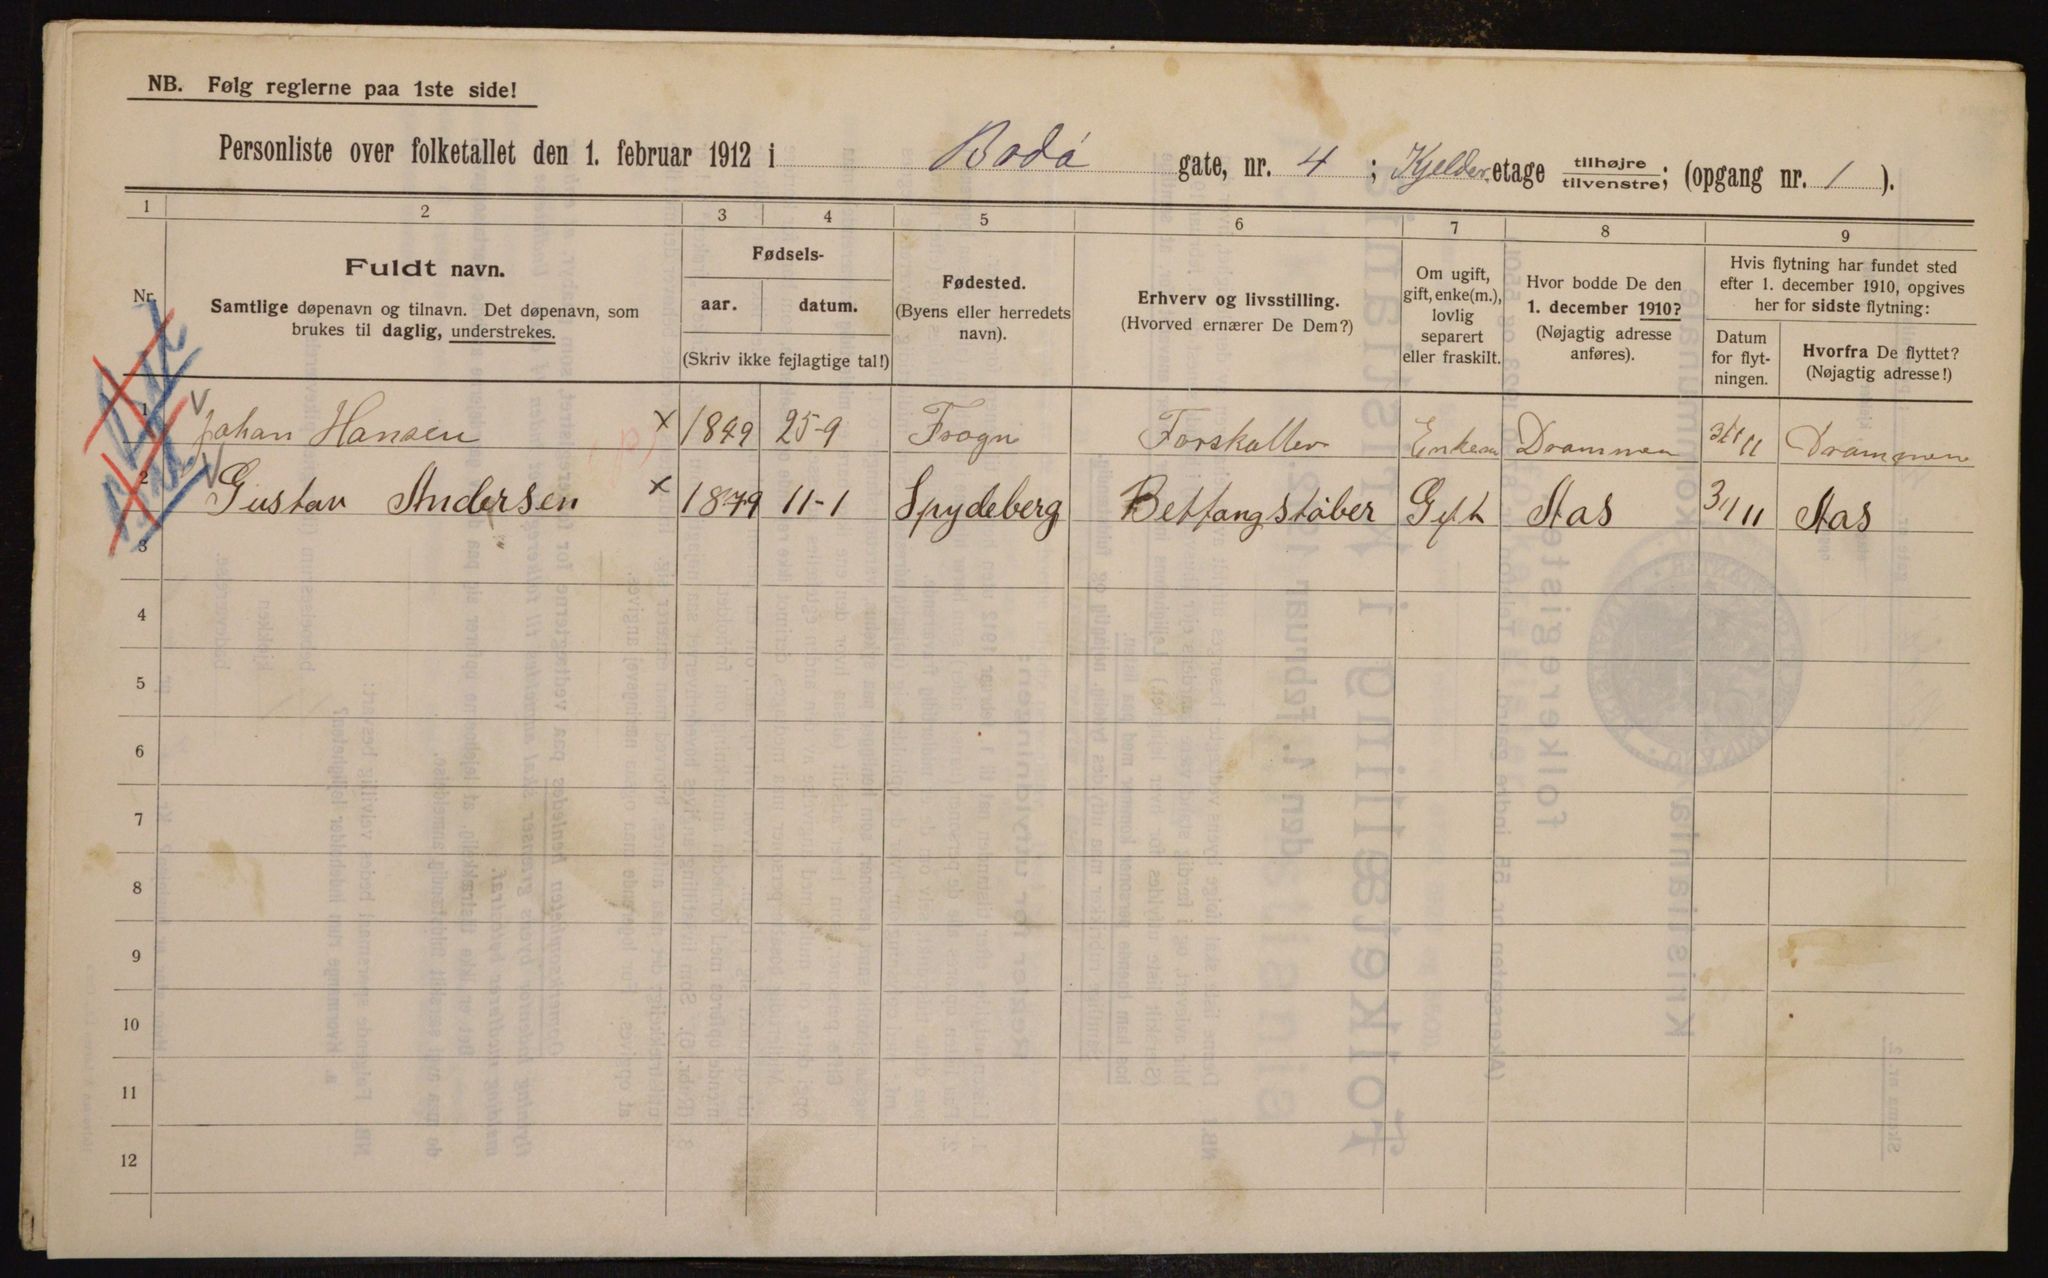 NB. Følg reglerne paa 1ste side!
Personliste over folketallet den 1. februar 1912 i Bodø gate, nr. 4 ; Kjelder etage tilhøjre/tilvenstre; (opgang nr. 1 ).
1 2 3 4 5 6 7 8 9
Nr.
Fuldt navn.
Samtlige døpenavn og tilnavn. Det døpenavn, som
brukes til daglig, understrekes.
Fødsels-
aar. datum.
(Skriv ikke fejlagtige tal!)
Fødested.
(Byens eller herredets
navn).
Erhverv og livsstilling.
(Hvorved ernærer De Dem?)
Om ugift,
gift, enke(m.),
lovlig
separert
eller fraskilt.
Hvor bodde De den
1. december 1910?
(Nøjagtig adresse
anføres).
Hvis flytning har fundet sted
efter 1. december 1910, opgives
her for sidste flytning:
Datum
for flyt-
ningen.
Hvorfra De flyttet?
(Nøjagtig adresse!)
1 Johan Hansen x 1849 25-9 Frogn Forskaller Enkem Drammen 11 Drammen
2 Gustav Andersen x 1879 11-1 Spydeberg Bettongstøber Gift Aas 3/1 11 Aas
3
4
5
6
7
8
9
10
11
12